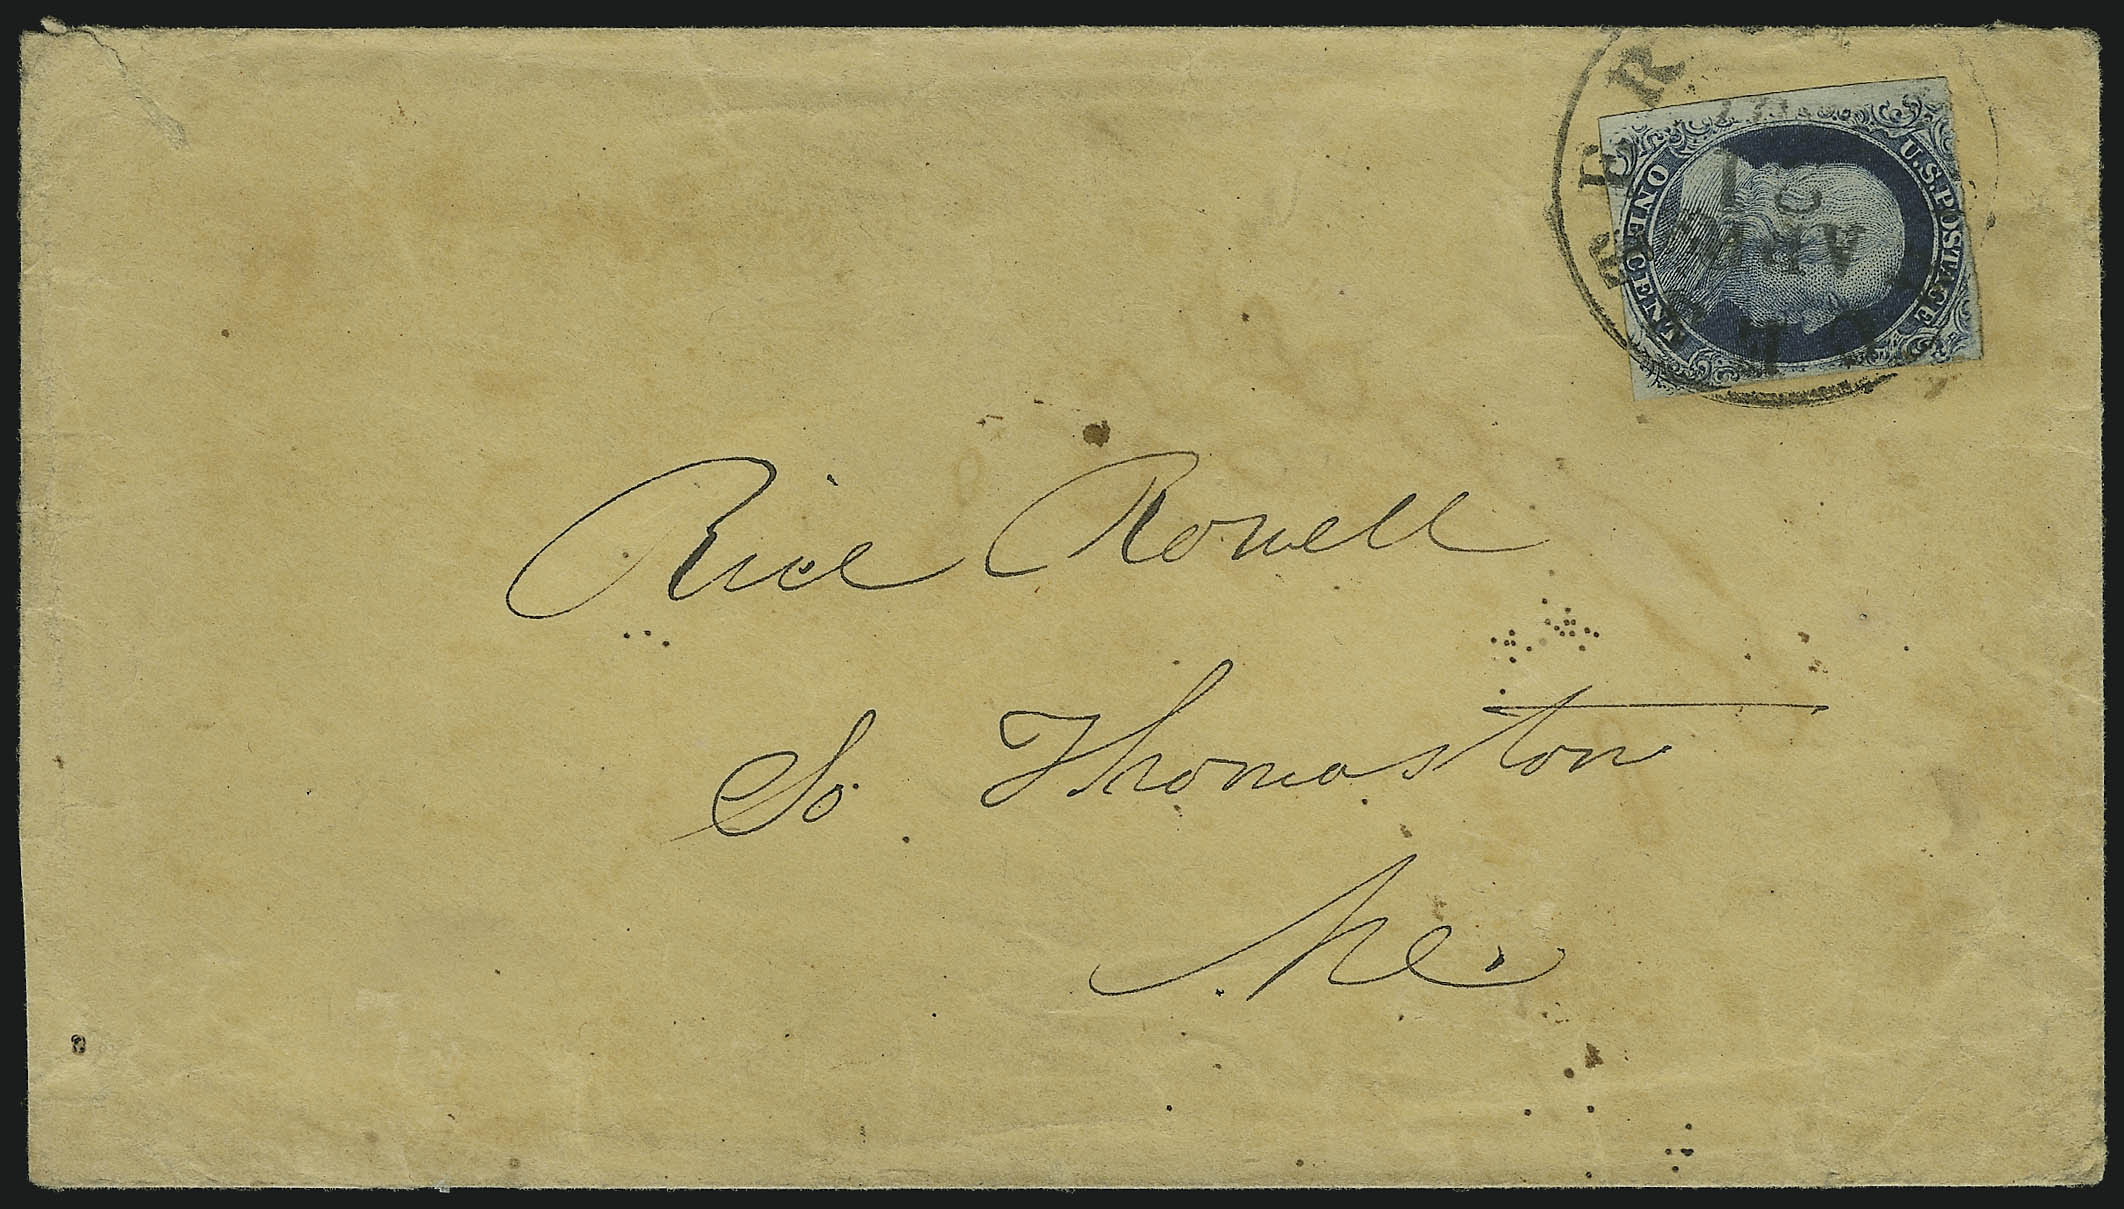 U.S. POSTAGE
ONE CENT
Rice Rowell
So Thomaston
Me.